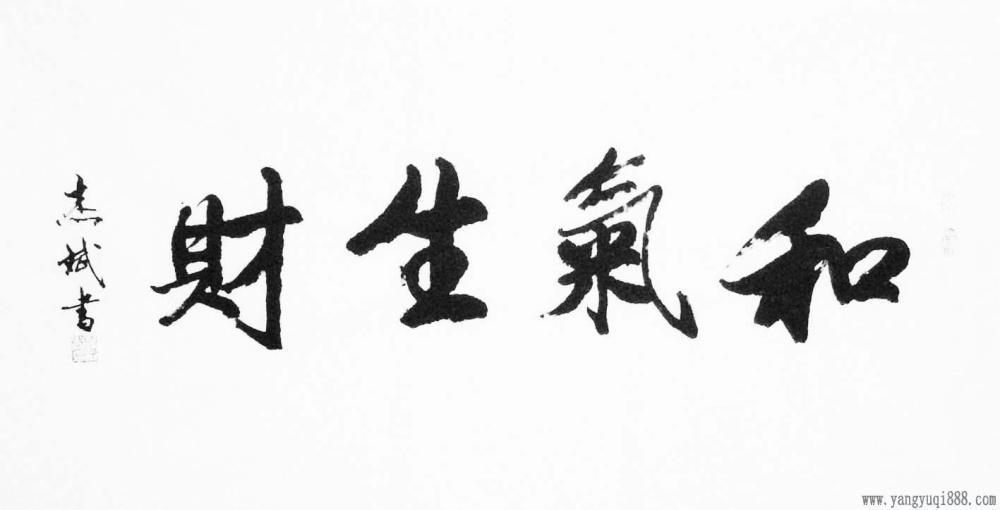 和氣生財
杰斌書
www.yangyuqi888.com